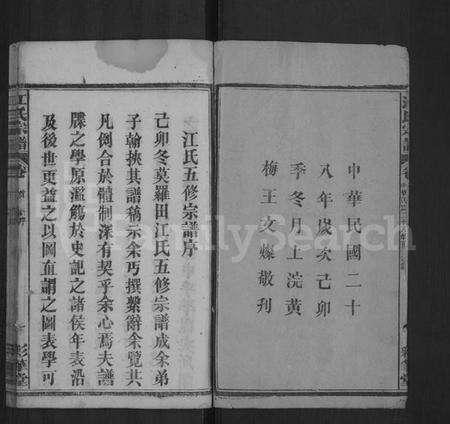 中華民國二十
八年歲次己卯
季冬月上浣黃
梅王文燦敬刋
江氏宗譜
卷
江氏五修宗譜序
己卯冬莫羅田江氏五修宗譜成余弟
子翰挾其譜稿示余丐撰繫辭余覽其
凡例合於體制深有契乎余心焉夫譜
牒之學原濫觴於史記之諸侯年表沿
及後世更益之以圖直謂之圖表學可
江氏宗譜
卷首
彩華堂
FamilySearch